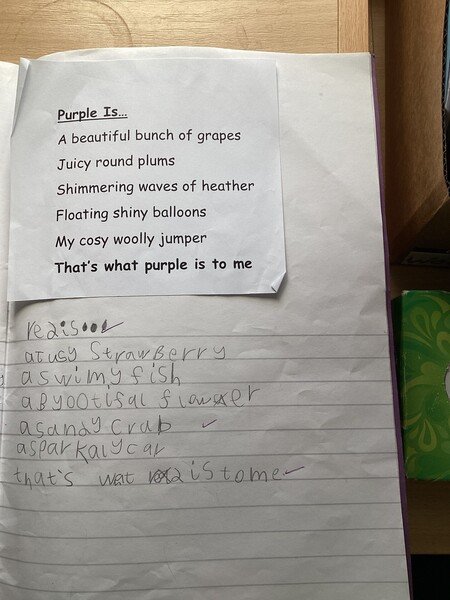 Purple Is...
A beautiful bunch of grapes
Juicy round plums
Shimmering waves of heather
Floating shiny balloons
My cosy woolly jumper
That's what purple is to me
red is...
a tusy Strawberry
a swimy fish
a Byootifal flower
a sandy crab
a sparkaly car
that's wat red is to me